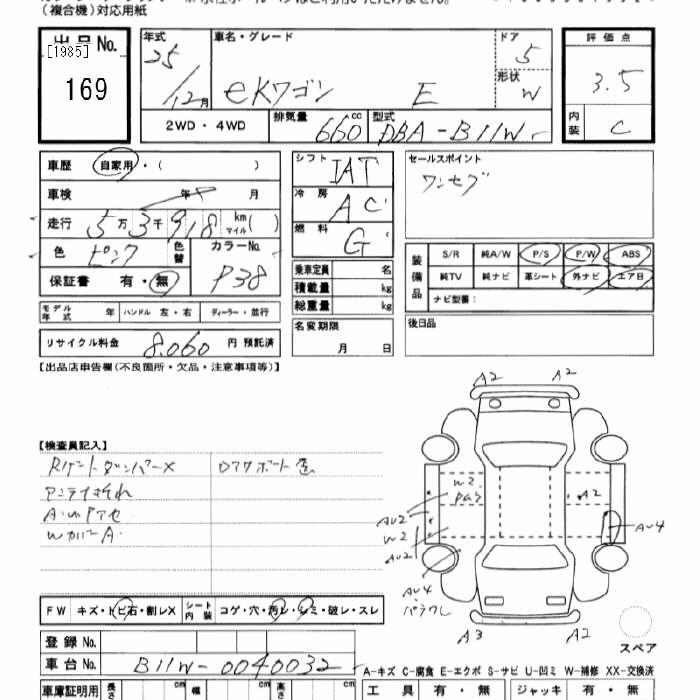 (複合機)対応用紙
出品No.
[1985]
169
年式 車名・グレード ドア
25
/12月 eKワゴン E 5
形状 W
2WD・4WD 排気量 660 cc 型式 DBA-B11W
評価点
3.5
内装 C
車歴 自家用・( )
車検 年 月
走行 5万3千918 km マイル( )
色 ピンク 色替 カラーNo.
保証書 有・無 P38
モデル年式 年 ハンドル 左・右 ディーラー・並行
リサイクル料金 8,060 円 預託済
シフト IAT
冷房 AC
燃料 G
乗車定員 名
積載量 kg
総重量 kg
名変期限
月 日
セールスポイント
ワンセグ
装備品 S/R 純A/W P/S P/W ABS
純TV 純ナビ 革シート 外ナビ エアB
ナビ型番:
後日品
【出品店申告欄(不良箇所・欠品・注意事項等)】
【検査員記入】
Rゲートダンパー×
W カバー A
A2 A2
W2
A2
AU2
W2
AU2
AU4
AU4
A3 A2
スペア
FW キズ・トビ石・割レX シート内装 コゲ・穴・汚レ・シミ・破レ・スレ
登録No.
車台No. B11W-0040032
A-キズ C-腐食 E-エクボ S-サビ U-凹ミ W-補修 XX-交換済
車庫証明用 長さ cm 幅 cm 高さ cm
工具 有・無 ジャッキ 有・無